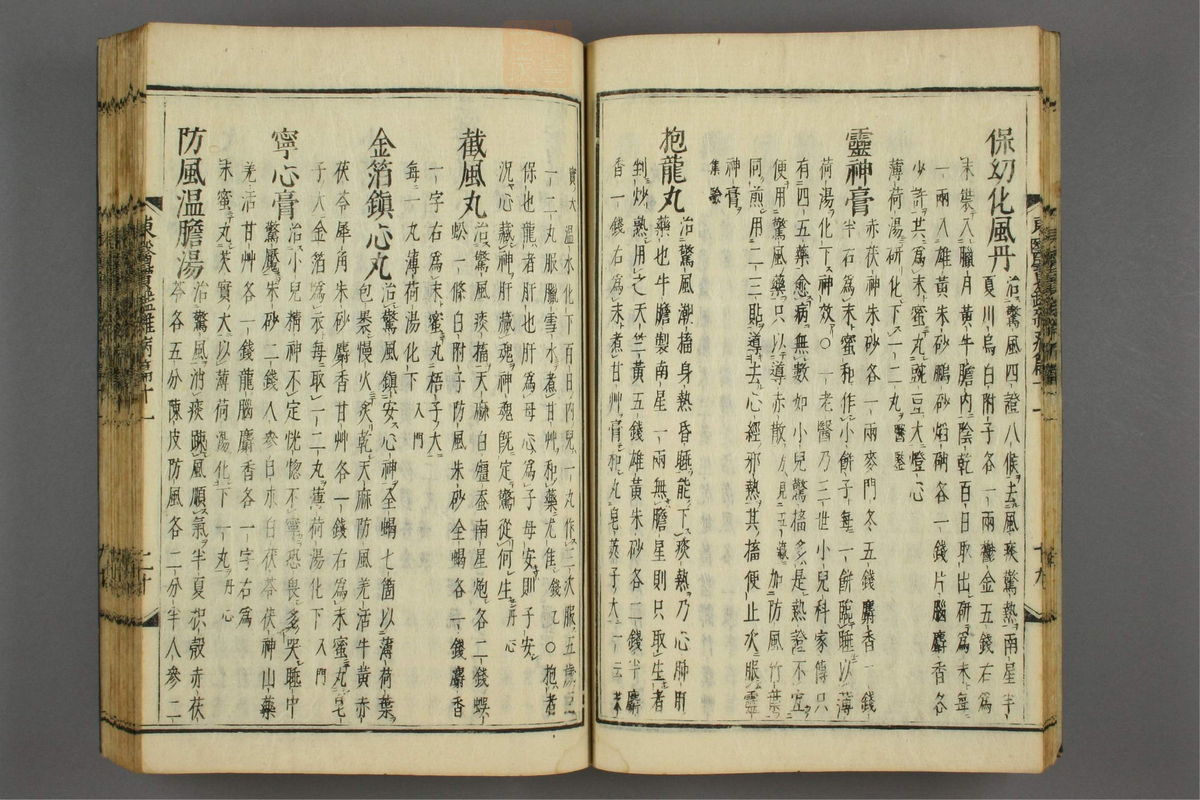 保幼化風丹 治驚風四證八候去風痰驚熱南星半
夏川烏白附子各一兩鬱金五錢右爲
末裝入臘月黃牛膽內陰乾百日取出研爲末每
一兩入雄黃朱砂鵬砂焰硝各一錢片腦麝香各
少許共爲末蜜丸豌豆大燈心
薄荷湯研化下一二丸醫鑒
靈神膏 赤茯神朱砂各一兩麥門冬五錢麝香一錢
半右爲末蜜和作小餠子每一餠臨睡以薄
荷湯化下神效○一老醫乃三世小兒科家傳只
有四五藥愈病無數如小兒驚搐多是熱證不宜
便用驚風藥只以導赤散方見五臟加防風竹葉
同煎用二三貼導去心經邪熱其搐便止次服靈
神膏集驗
抱龍丸 治驚風潮搐身熱昏睡能下痰熱乃心肺肝
藥也牛膽製南星一兩無膽星則只取生者
剉炒熟用之天竺黃五錢雄黃朱砂各二錢半麝
香一錢右爲末煮甘艸膏和丸皂莢子大一云芡
東醫寶鑑雜病篇十一 十九
實大溫水化下百日內兒一丸作三次服五歲
一二丸服臘雪水煮甘艸和藥尤佳錢乙○抱者
保也龍者肝也肝爲母心爲子母安則子安
況心藏神肝藏魂神魂旣定驚從何生丹心
截風丸 治驚風痰搐天麻白殭蚕南星炮各二錢蜈
蚣一條白附子防風朱砂全蝎各一錢麝香
一字右爲末蜜丸梧子大
每一丸薄荷湯化下入門
金箔鎭心丸 治驚風鎭安心神全蝎七箇以薄荷葉
包裹慢火炙乾天麻防風羌活牛黃赤
茯苓犀角朱砂麝香甘艸各一錢右爲末蜜丸皂
子大金箔爲衣每取一二丸薄荷湯化下入門
寧心膏 治小兒精神不定恍惚不寧恐畏多哭睡中
驚魘朱砂二錢人參白朮白茯苓茯神山藥
羌活甘艸各一錢龍腦麝香各一字右爲
末蜜丸芡實大以薄荷湯化下一丸丹心
防風温膽湯 治驚風消痰踈風順氣半夏枳殼赤茯
苓各五分陳皮防風各二分半人參二
東醫寶鑑雜病篇十一 二十